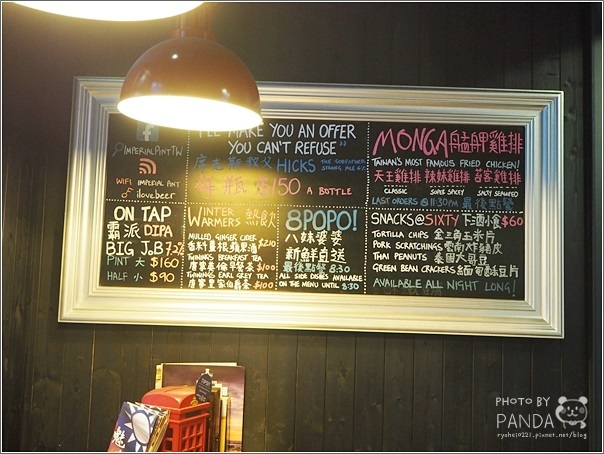 IMPERIALPINTTW
WIFI IMPERIAL PINT
ilovebeer
I'LL MAKE YOU AN OFFER
YOU CAN'T REFUSE"
HICKS THE GODFATHER
STRONG ALE
每瓶 $150 A BOTTLE
MONGA 艋舺雞排
TAIWAN'S MOST FAMOUS FRIED CHICKEN!
天王雞排 辣妹雞排 苔客雞排
CLASSIC SUPER SPICEY SPICY SEAWEED
LAST ORDERS @ 11:30PM 最後點餐
ON TAP
霸派 DIPA
BIG JOB 7.2%
PINT 大 $160
HALF 小 $90
WINTER WARMERS 熱飲
MULLED GINGER CIDER
香料薑根蘋果酒 $210
TWININGS BREAKFAST TEA
唐寧英倫早餐茶 $100
TWININGS EARL GREY TEA
唐寧皇家伯爵茶 $100
8POPO!
八妹婆婆
新鮮直送
最後點餐 8:30
ALL SIDE DISHES AVAILABLE
ON THE MENU UNTIL 8:30
SNACKS@SIXTY 下酒小食 $60
TORTILLA CHIPS 金三角玉米片
PORK SCRATCHINGS 雲南炸豬皮
THAI PEANUTS 泰國大哥豆
GREEN BEAN CRACKERS 緬甸酥豆片
AVAILABLE ALL NIGHT LONG!
PHOTO BY
PANDA
ryohei0221.pixnet.net/blog